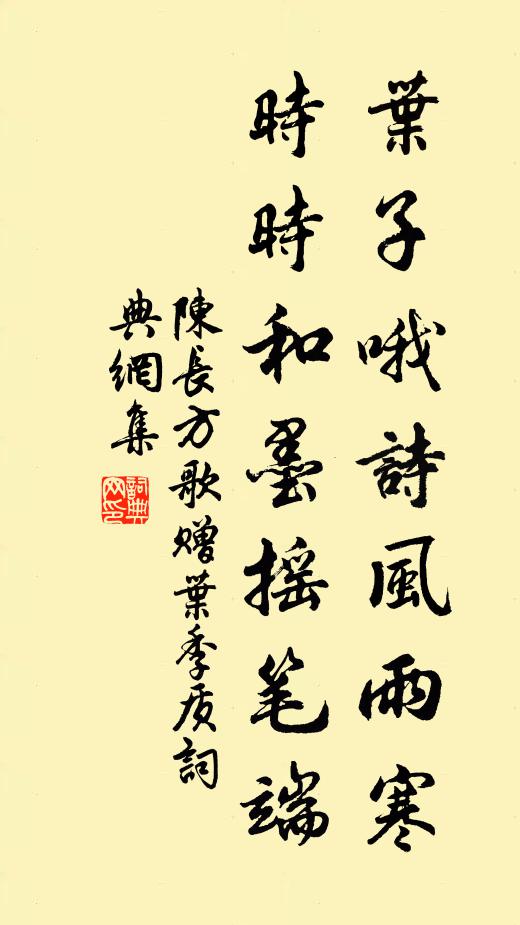 葉子哦詩風雨寒
時時和墨摇笔端
陳長方歌赠葉季质詞
典網集
詞典网印